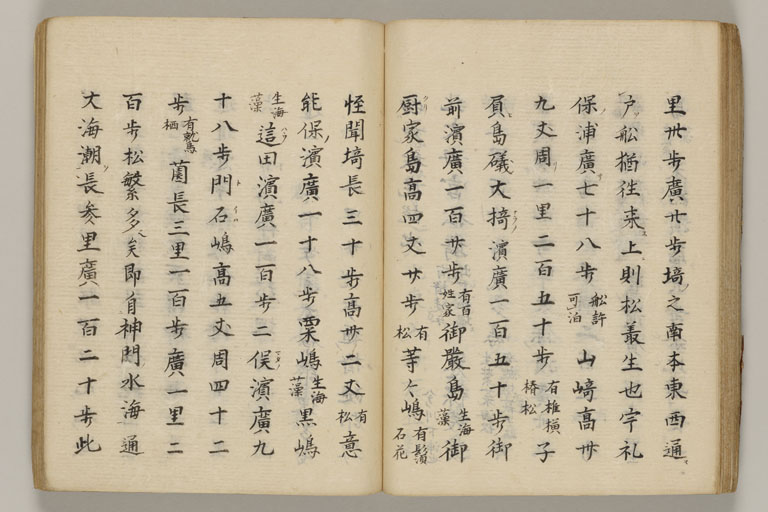 里卅歩廣廿歩埼之南本東西通
戸舩猶徃来上則松叢生也宇礼
保浦廣七十八歩 舩許可泊 山﨑高卅
九丈周一里二百五十歩 有椎椿松 子
負島礒大掎濱廣一百五十歩御
前濱廣一百廿歩 有百姓家 御嚴島 生海藻 御
厨家島高四丈廿歩 有松 等々嶋 有石花
恠聞埼長三十歩高卅二丈 有松 意
能保濱廣一十八歩栗嶋 生海藻 黒嶋
生海藻 這田濱廣一百歩二俣濱廣九
十八歩門石嶋高五丈周四十二
歩 有鷲栖 薗長三里一百歩廣一里二
百歩松繁多矣即自神門水海通
大海潮長参里廣一百二十歩此